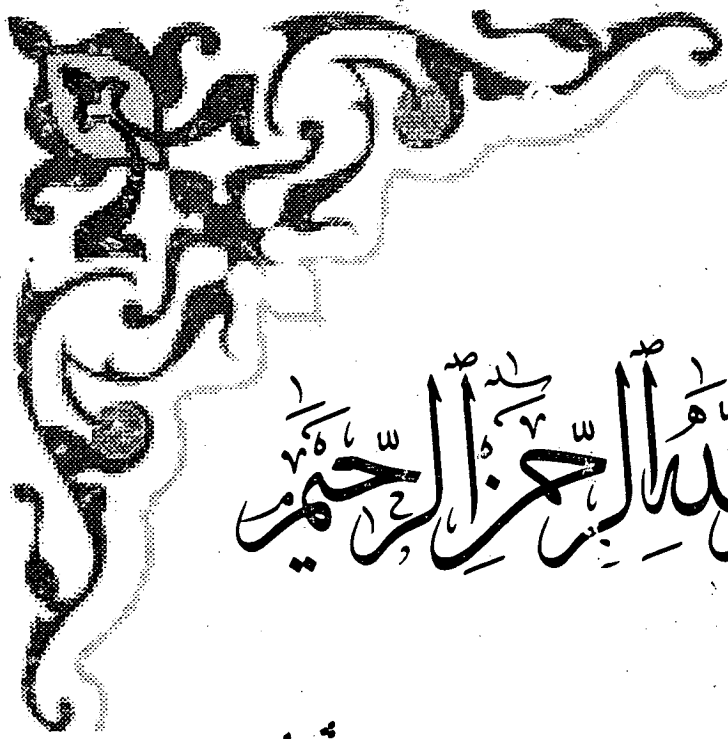 ٱلرَّحْمَٰنِ ٱلرَّحِيمِ